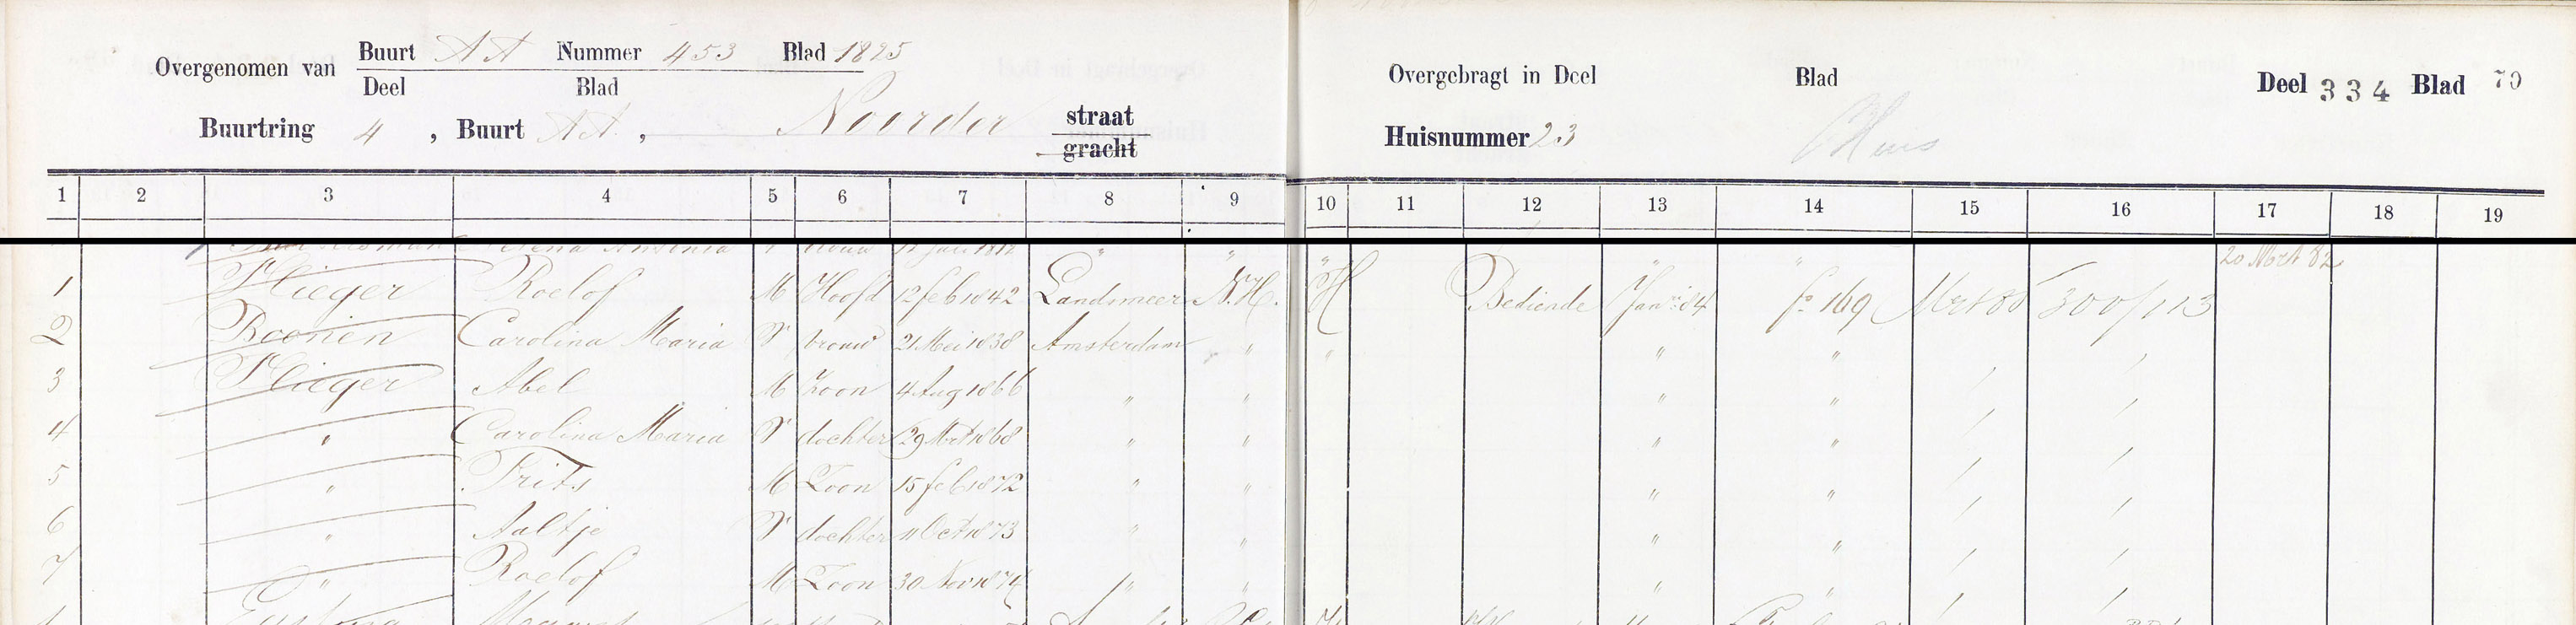 Overgenomen van Buurt AA Nummer 453 Blad 1825
Deel Blad
Buurtring 4, Buurt AA, Noorder straat
gracht
Overgebragt in Deel Blad Deel 334 Blad 70
Huisnummer 23 Huis
1 2 3 4 5 6 7 8 9 10 11 12 13 14 15 16 17 18 19
20 Mrt 82
1 Vlieger Roelof M Hoofd 12 feb 1842 Landsmeer N.H. H Bediende Jan: 84 fo 169 Mrt 88 300/113
2 Boonen Carolina Maria V vrouw 21 Mei 1838 Amsterdam " " " "
3 Vlieger Abel M Zoon 4 Aug 1866 " " " "
4 " Carolina Maria V dochter 29 Mrt 1868 " " " "
5 " Frits M Zoon 15 feb 1872 " " " "
6 " Aaltje V dochter 11 Oct 1873 " " " "
7 " Roelof M Zoon 30 Nov 1874 " " " "